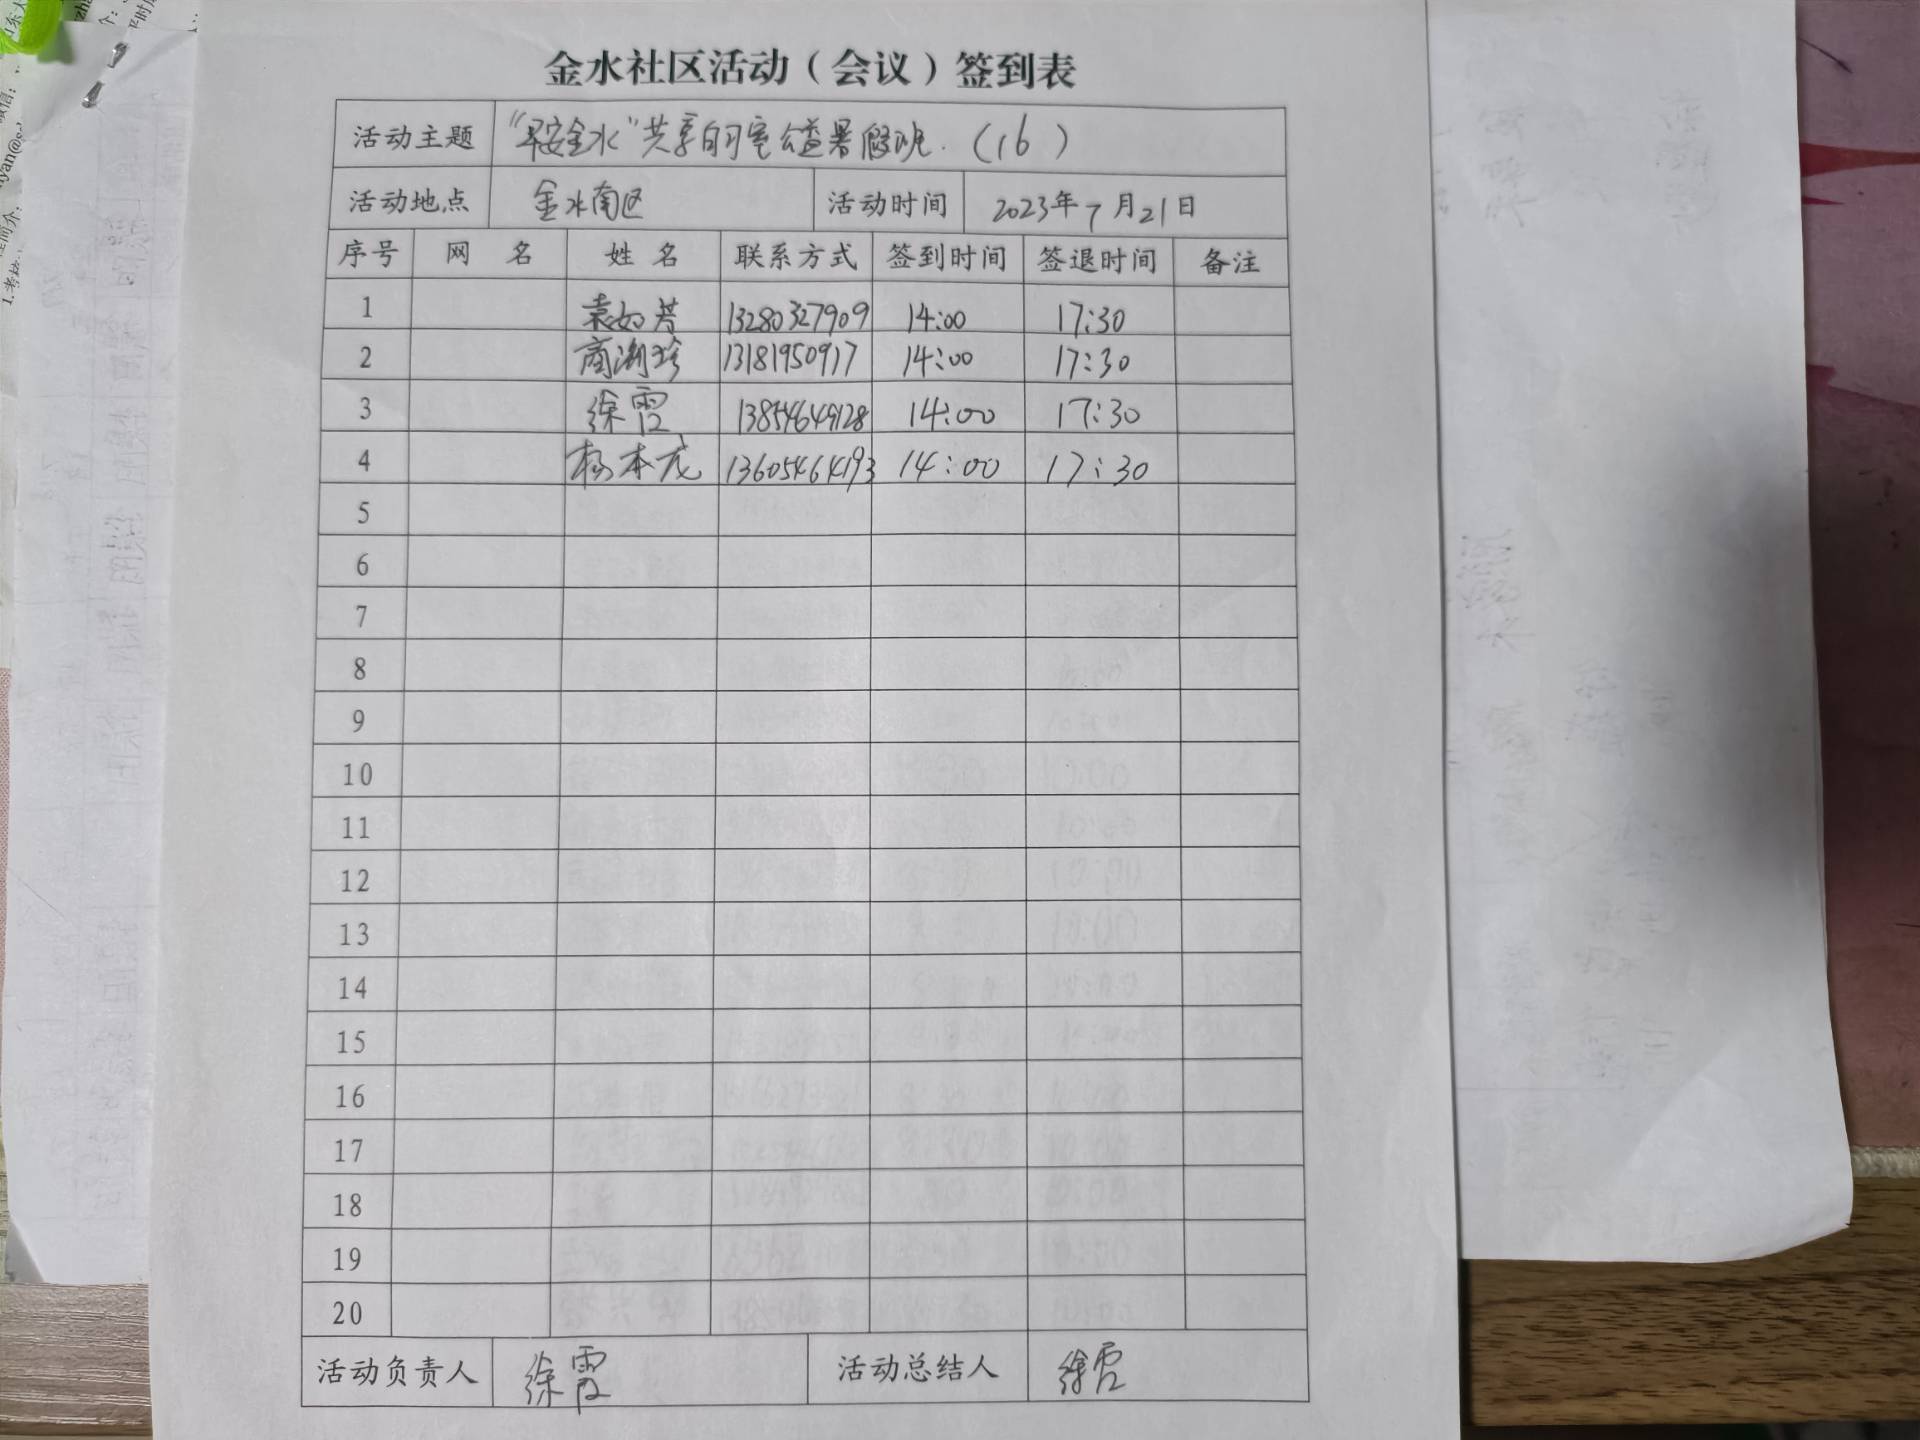 金水社区活动（会议）签到表
活动主题 “平安金水”共享自习室公益暑假班.（16）
活动地点 金水南区 活动时间 2023年7月21日
序号 网 名 姓 名 联系方式 签到时间 签退时间 备注
1 袁如芳 13280327909 14:00 17:30
2 商潮珍 13181950917 14:00 17:30
3 徐霞 13854649128 14:00 17:30
4 杨本龙 13605464193 14:00 17:30
5
6
7
8
9
10
11
12
13
14
15
16
17
18
19
20
活动负责人 徐霞 活动总结人 徐霞